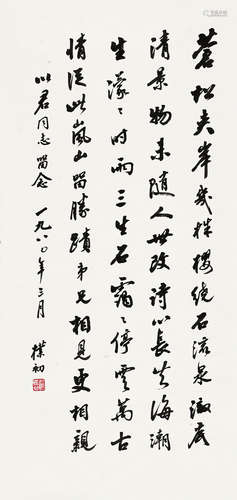 蒼松夾岸幾株櫻繞石流泉澈底
清景物未隨人世改詩心長共海潮
生濛〻時雨三生石靄〻停雲萬古
情從此嵐山留勝蹟弟兄相見更相親
以君同志留念 一九八〇年三月 樸初